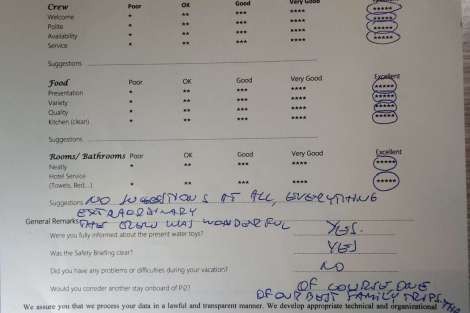 Crew Poor OK Good Very Good
Welcome * ** *** **** *****
Polite * ** *** **** *****
Availability * ** *** **** *****
Service * ** *** **** *****
Suggestions
Food Poor OK Good Very Good Excellent
Presentation * ** *** **** *****
Variety * ** *** **** *****
Quality * ** *** **** *****
Kitchen (clean) * ** *** **** *****
Suggestions
Rooms/ Bathrooms Poor OK Good Very Good Excellent
Neatly * ** *** **** *****
Hotel Service
(Towels, Bed,...) * ** *** **** *****
Suggestions NO SUGGESTIONS AT ALL, EVERYTHING
EXTRAORDINARY
General Remarks THE CREW WAS WONDERFUL
Were you fully informed about the present water toys? YES.
Was the Safety Briefing clear? YES
Did you have any problems or difficulties during your vacation? NO
Would you consider another stay onboard of Pi2? OF COURSE ONE
OF OUR BEST FAMILY TRIPS
We assure you that we process your data in a lawful and transparent manner. We develop appropriate technical and organizational